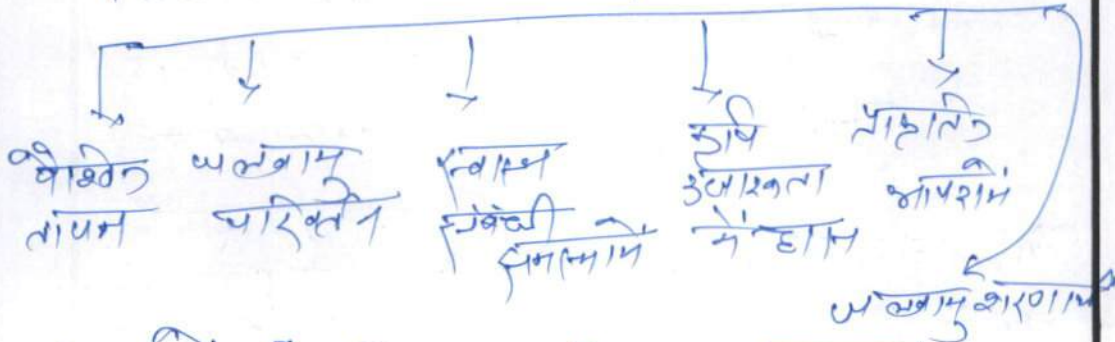 वैश्विक तापन
जलवायु परिवर्तन
स्वास्थ्य संबंधी समस्यायें
कृषि उत्पादकता में ह्रास
प्राकृतिक आपदायें
जलवायु शरणार्थी